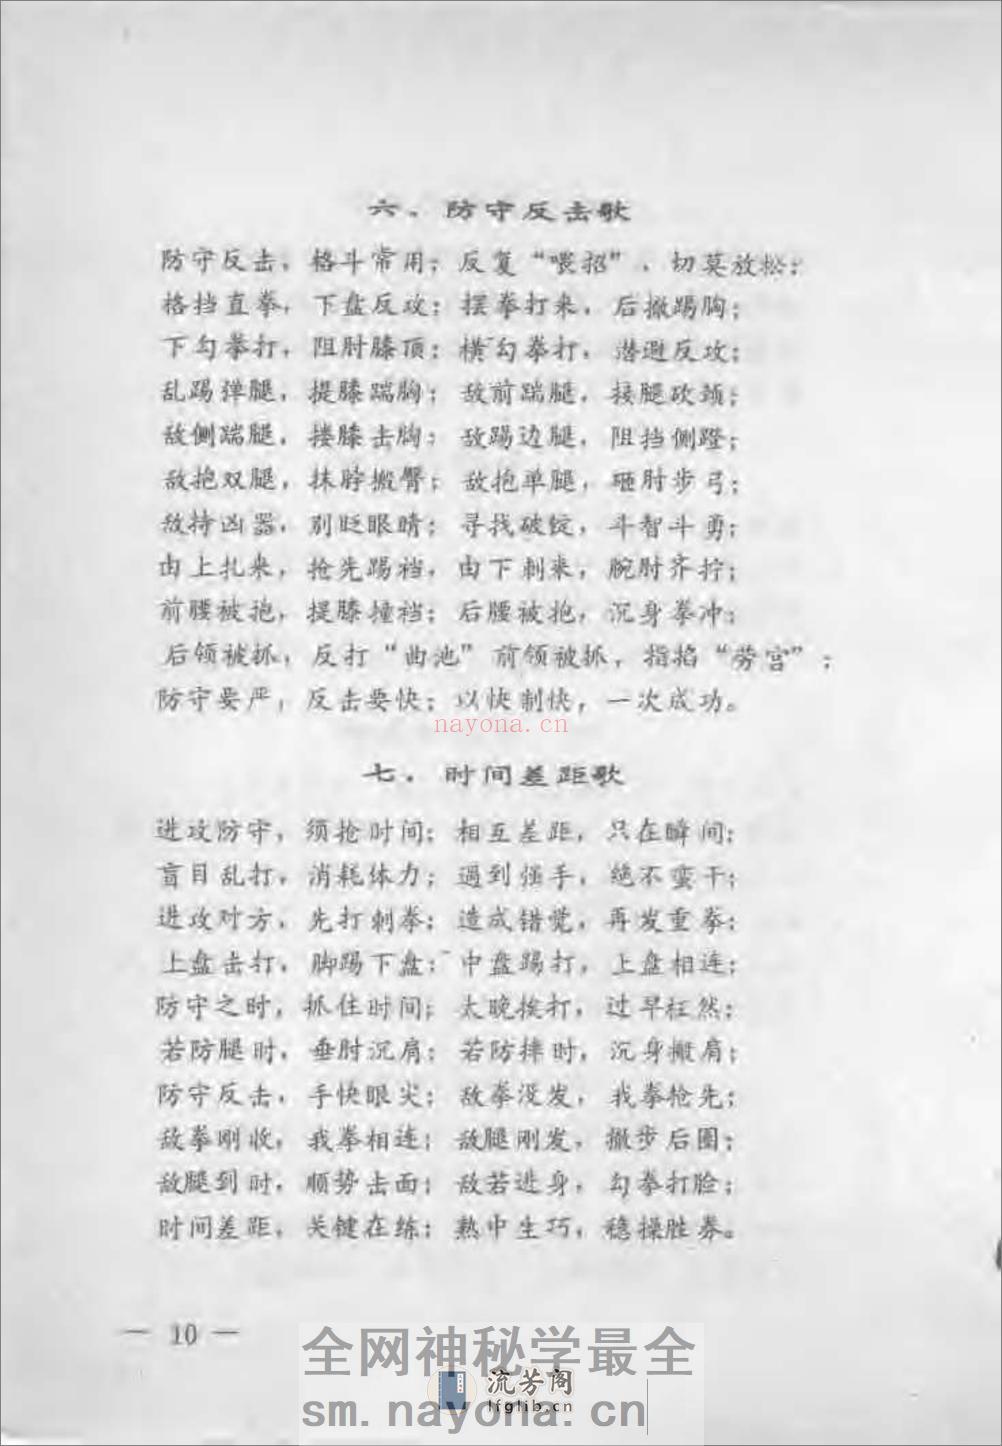 六、防守反击歌
防守反击，格斗常用；反复“喂招”，切莫放松；
格挡直拳，下盘反攻；摆拳打来，后撤踢胸；
下勾拳打，阻肘膝顶；横勾拳打，潜避反攻；
乱踢弹腿，提膝踹胸；敌前踹腿，接腿砍颈；
敌侧踹腿，搂膝击胸；敌踢边腿，阻挡侧蹬；
敌抱双腿，抹脖搬臀；敌抱单腿，砸肘步弓；
敌持凶器，别眨眼睛；寻找破锭，斗智斗勇；
由上扎来，抢先踢裆，由下刺来，腕肘齐拧；
前腰被抱，提膝撞裆；后腰被抱，沉身拳冲；
后领被抓，反打“曲池”前领被抓，指掐“劳宫”；
防守要严，反击要快；以快制快，一次成功。
nayona.cn
七、时间差距歌
进攻防守，须抢时间；相互差距，只在瞬间；
盲目乱打，消耗体力；遇到强手，绝不蛮干；
进攻对方，先打刺拳；造成错觉，再发重拳；
上盘击打，脚踢下盘；中盘踢打，上盘相连；
防守之时，抓住时间；太晚挨打，过早枉然；
若防腿时，垂肘沉肩；若防摔时，沉身撤肩；
防守反击，手快眼尖；敌拳没发，我拳枪先；
敌拳刚收，我拳相连；敌腿刚发，撤步后圈；
敌腿到时，顺势击面；敌若进身，勾拳打脸；
时间差距，关键在练；熟中生巧，稳操胜券。
— 10 —
全网神秘学最全
流芳阁
lfglib.cn
sm.nayona.cn